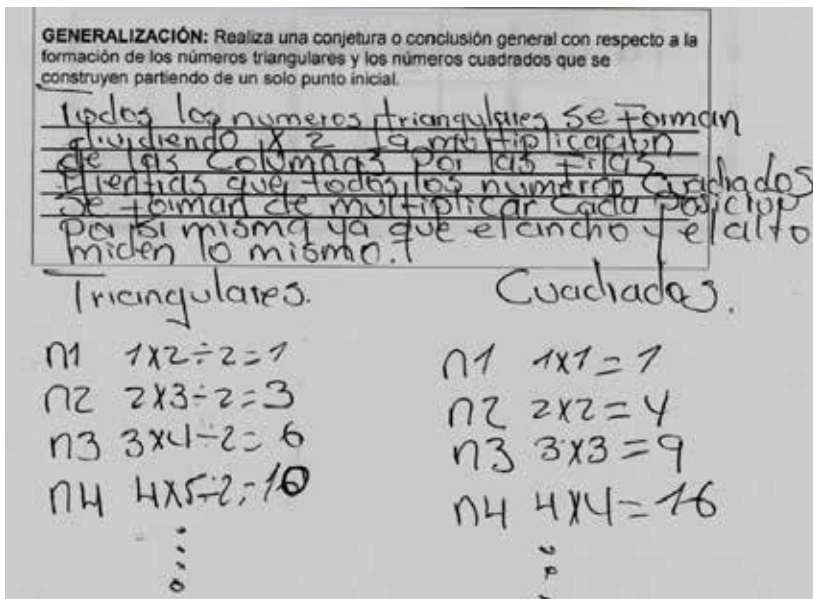 GENERALIZACIÓN: Realiza una conjetura o conclusión general con respecto a la
formación de los números triangulares y los números cuadrados que se
construyen partiendo de un solo punto inicial.
Todos los numeros triangulares se Forman
dividiendo x 2 la multiplicación
de las Columnas Por las Filas
Mientras que todos los numeros Cuadrados
se forman de multiplicar Cada Posicion
Por si misma ya que el ancho y el alto
miden lo mismo.
Triangulares.
n1 1x2÷2=1
n2 2x3÷2=3
n3 3x4÷2=6
n4 4x5÷2=10
Cuadrados.
n1 1x1=1
n2 2x2=4
n3 3x3=9
n4 4x4=16